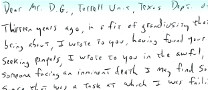 Dear Mr. D.G., Terrell Unit, Texas Dept. o
Thirteen years ago, in a fit of grandiosity tha
bring about, I wrote to you, having found your
Seeking penpals, I wrote to you in the awful,
Someone facing an imminent death I may find so
that was a task at which I was fail